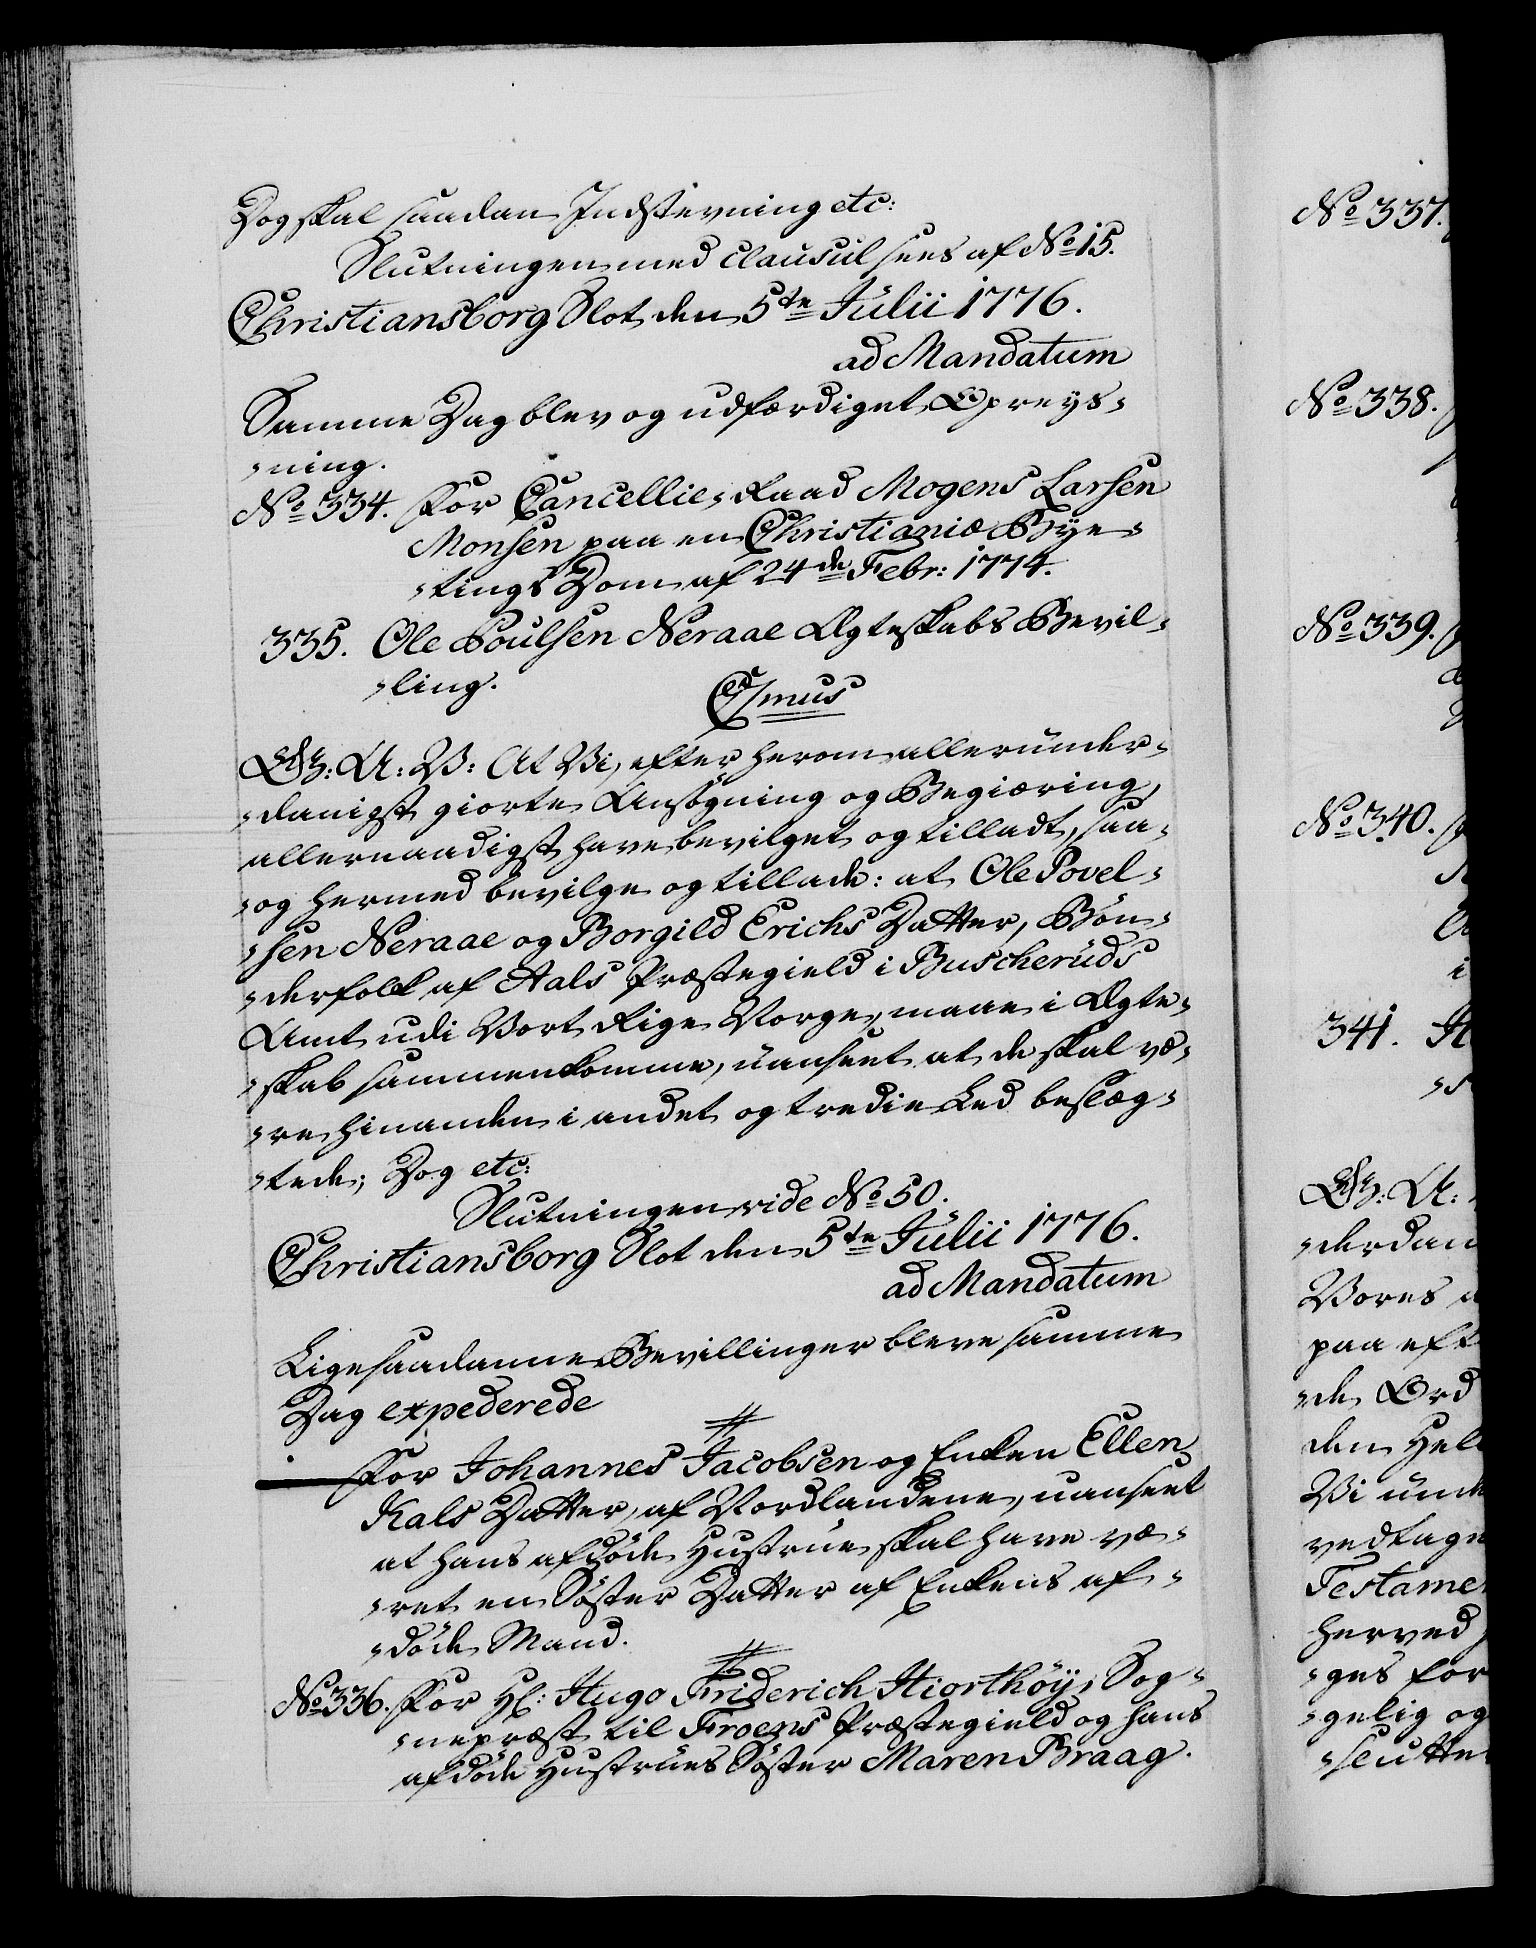 Dog skal saadan Indstevning etc:
Slutningen med Clausul sees af No 15.
Christiansborg Slot den 5te Julii 1776.
ad Mandatum
Samme Dag blev og udfærdiget Opreys-
-ning.
No 334. For Cancellie-Raad Mogens Larsen
Monsen paa en Christianiæ Bye-
-tings Dom af 24de Febr: 1774.
335. Ole Poulsen Neraae Ægteskabs Bevil-
-ling.
C7mus
G: A: V: At Vi, efter herom allerunder-
-danigst giorte Ansögning og Begiæring,
allernaadigst have bevilget og tilladt, saa-
-og hermed bevilge og tillade: at Ole Povel-
-sen Neraae og Borgild Erichs Datter, Bön-
-derfolk af Aals Præstegield i Buscheruds
Amt udi Vort Rige Norge, maae i Ægte-
-skab sammenkomme, uanseet at de skal væ-
-re hinanden i andet og tredie Led beslæg-
-tede; Dog etc:
Slutningen vide No 50.
Christiansborg Slot den 5te Julii 1776.
ad Mandatum
Ligesaadanne Bevillinger bleve samme
Dag expederede
For Johannes Jacobsen og Enken Ellen
Kals Datter, af Nordlandene, uanseet
at hans afdöde Hustrue skal have væ-
-ret en Söster Datter af Enkens af-
-döde Mand.
No 336. For Hr: Hugo Friderich Hiorthöy, Sog-
-nepræst til Froens Præstegield og hans
afdöde Hustrues Söster Maren Braag.
No 337.
No 338.
No 339.
No 340.
341.
G: A:
-derdan
Vores
paa eft
-de Ord
den Hel
Vi und
vedtagn
Testame
herved
-ges for
-gelig og
-slutte